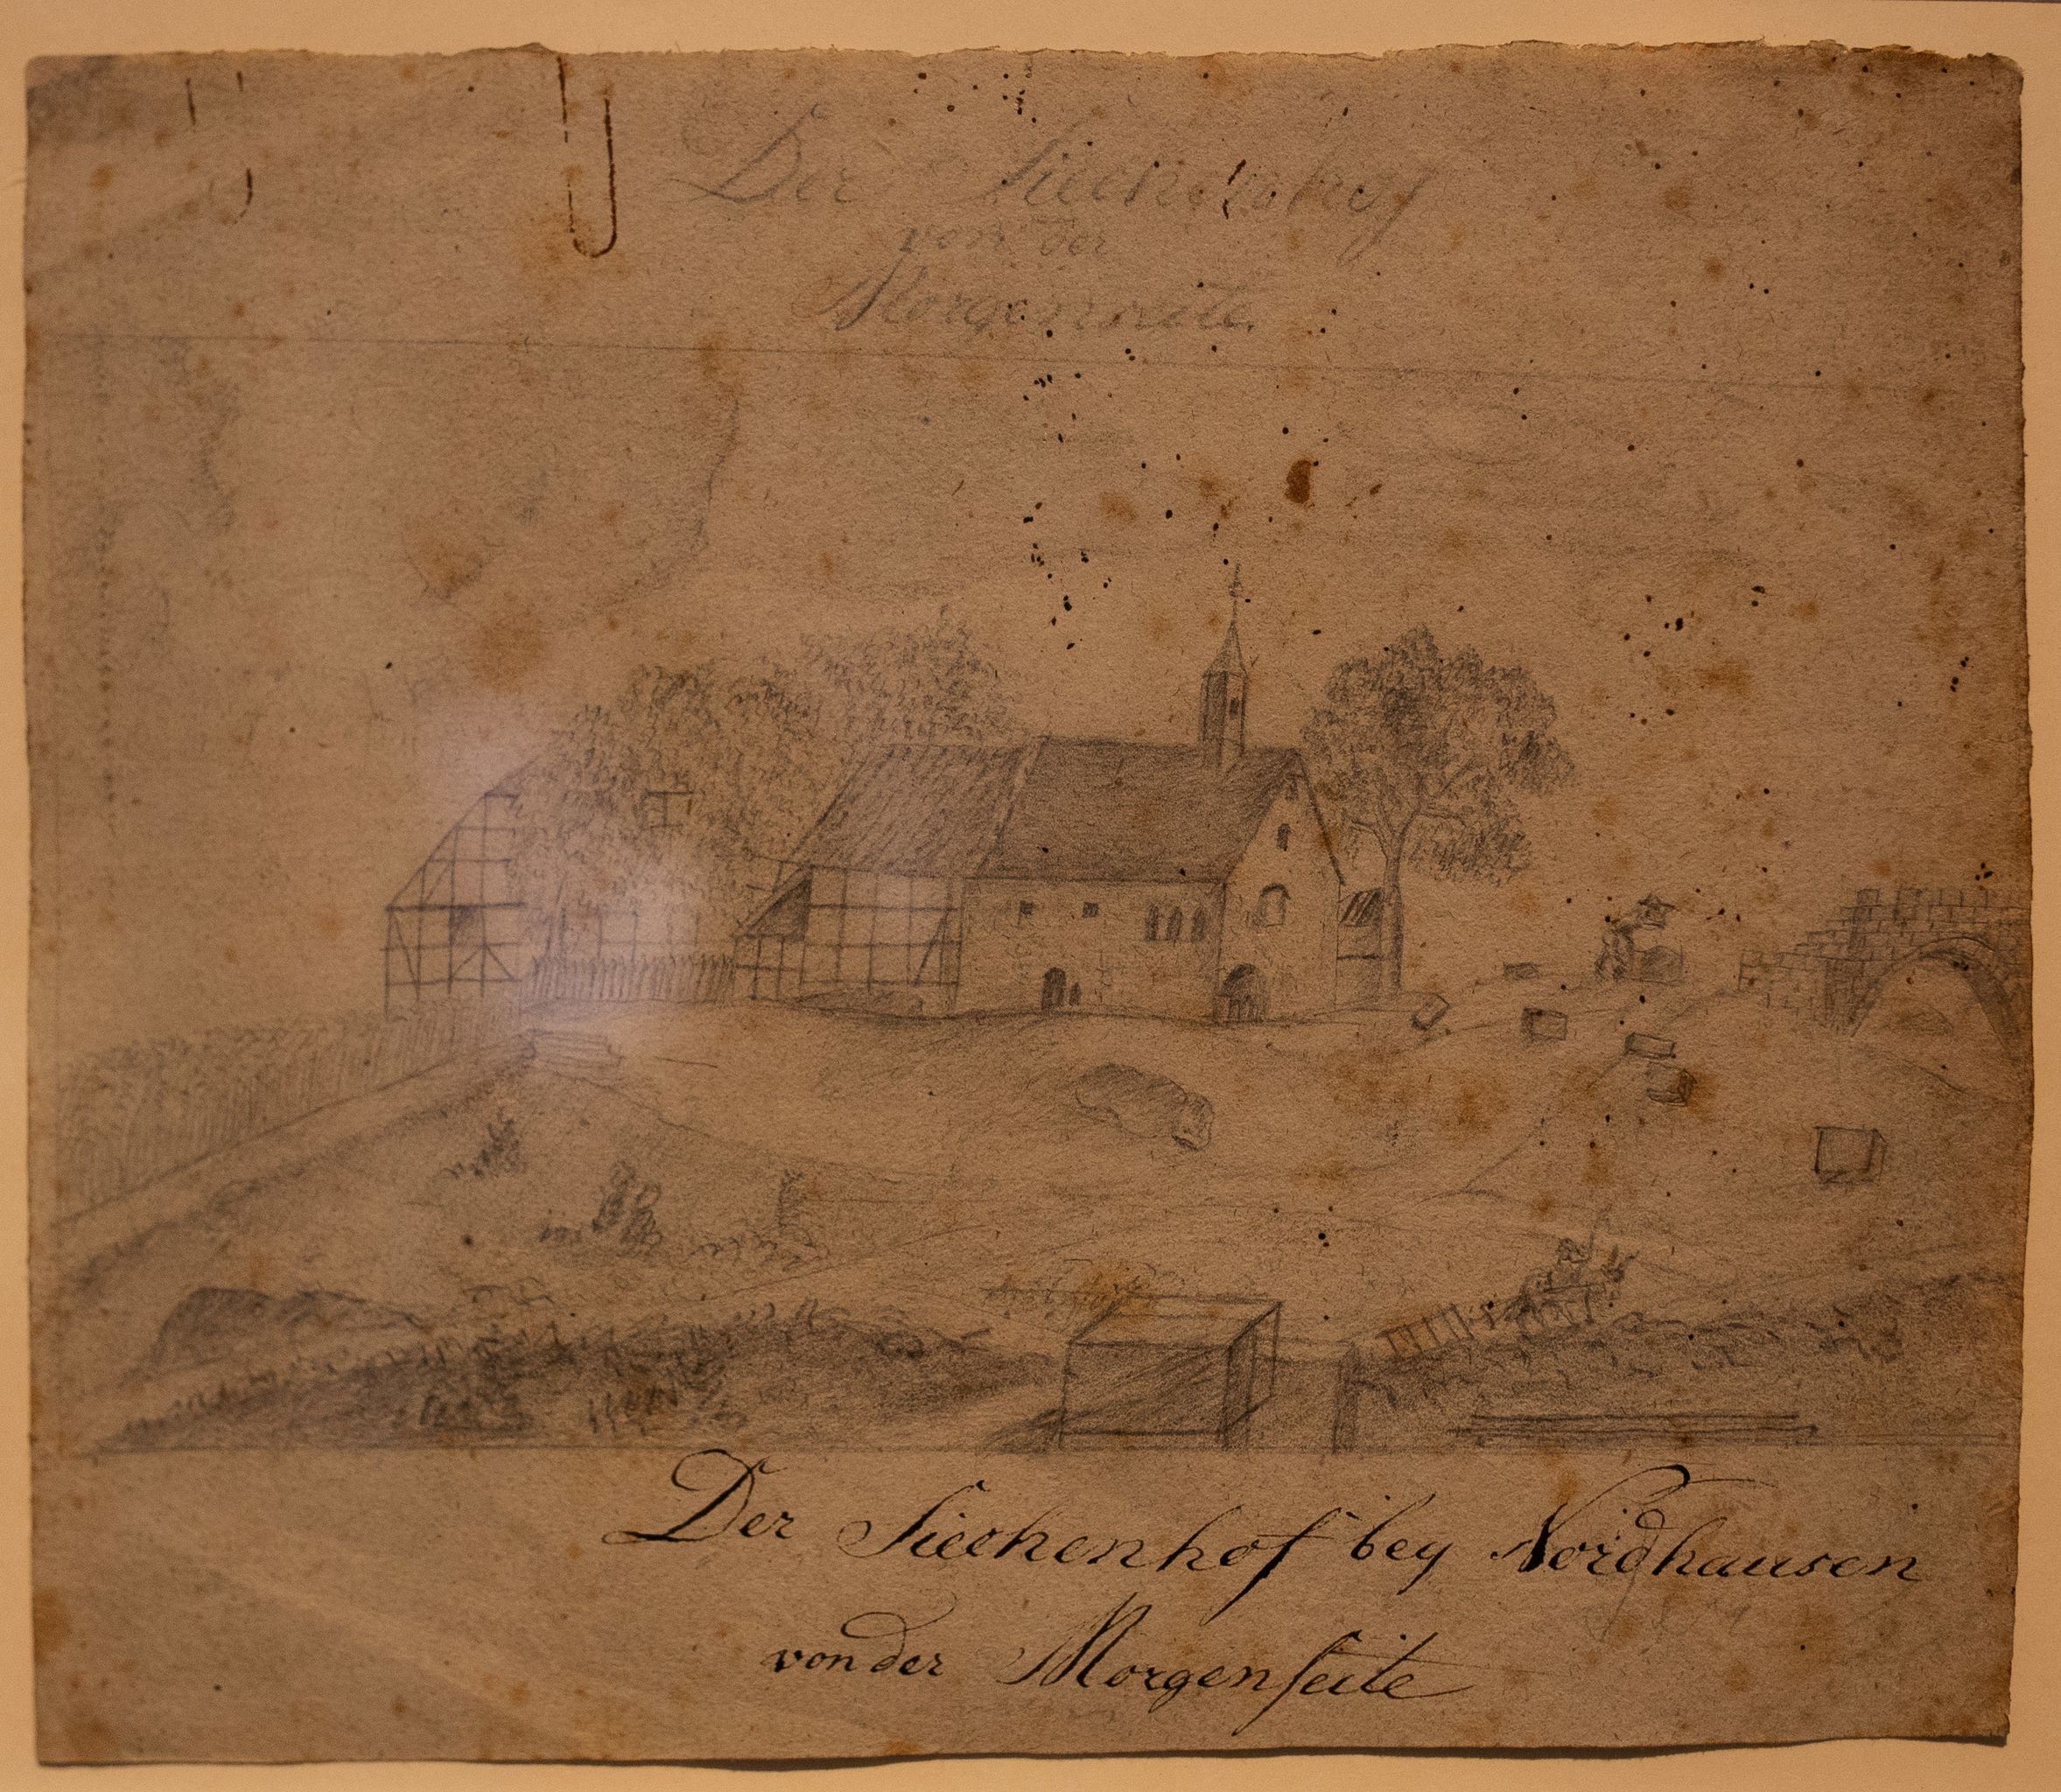 Der Siechenhof
von der
Morgenseite.
Der Siechenhof bey Nordhausen
von der Morgenſeite